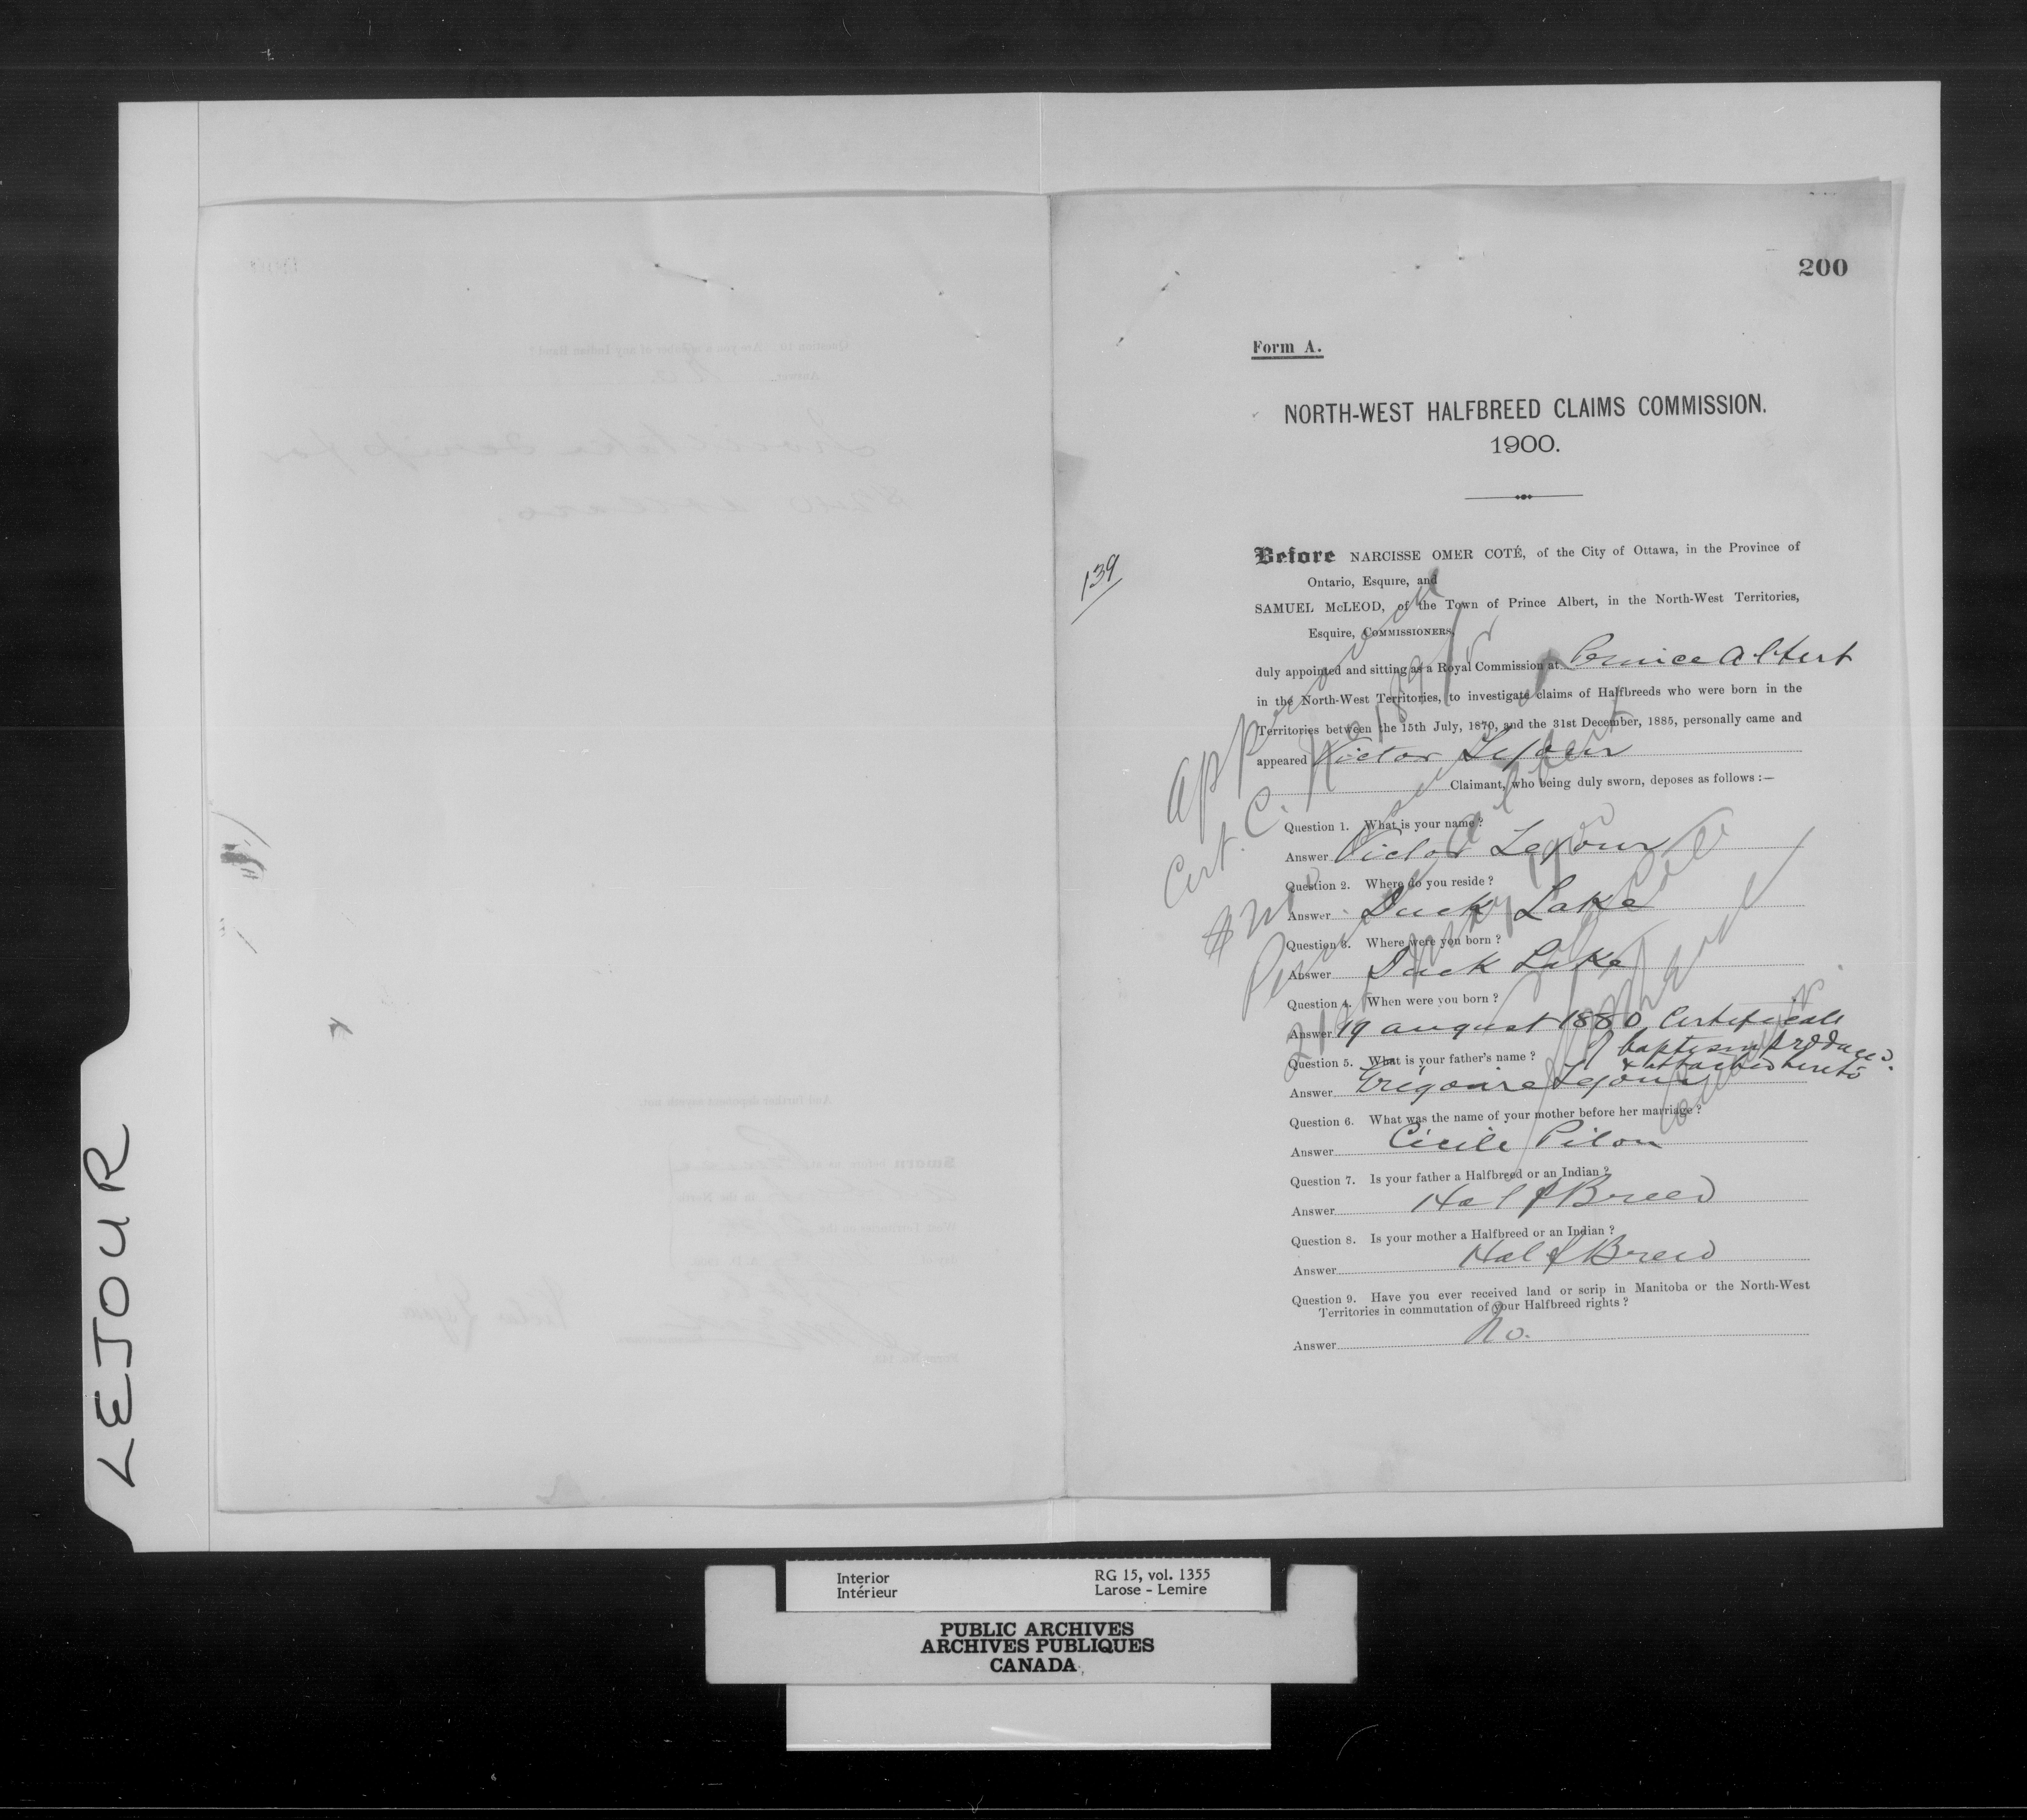 200
Form A.
NORTH-WEST HALFBREED CLAIMS COMMISSION.
1900.
139
Before NARCISSE OMER COTÉ, of the City of Ottawa, in the Province of
Ontario, Esquire, and
SAMUEL McLEOD, of the Town of Prince Albert, in the North-West Territories,
Esquire, COMMISSIONERS,
duly appointed and sitting as a Royal Commission at Prince Albert
in the North-West Territories, to investigate claims of Halfbreeds who were born in the
Territories between the 15th July, 1870, and the 31st December, 1885, personally came and
appeared Victor Lejour
Claimant, who being duly sworn, deposes as follows :—
Question 1. What is your name?
Answer Victor Lejour
Question 2. Where do you reside?
Answer Duck Lake
Question 3. Where were you born?
Answer Duck Lake
Question 4. When were you born?
Answer 19 august 1880 Certificate
of baptism produced
& attached hereto
Question 5. What is your father's name?
Answer Grégoire Lejour
Question 6. What was the name of your mother before her marriage?
Answer Cécile Pilon
Question 7. Is your father a Halfbreed or an Indian?
Answer Half Breed
Question 8. Is your mother a Halfbreed or an Indian?
Answer Half Breed
Question 9. Have you ever received land or scrip in Manitoba or the North-West
Territories in commutation of your Halfbreed rights?
Answer No.
Cert. C. No
Prince Albert
21st May 1900
LEJOUR
Interior
Intérieur
RG 15, vol. 1355
Larose - Lemire
PUBLIC ARCHIVES
ARCHIVES PUBLIQUES
CANADA